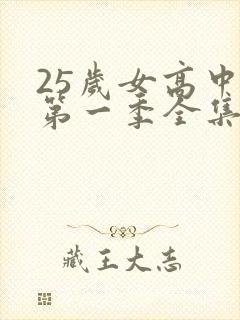 25歲女高中
第一季全集
藏王大志